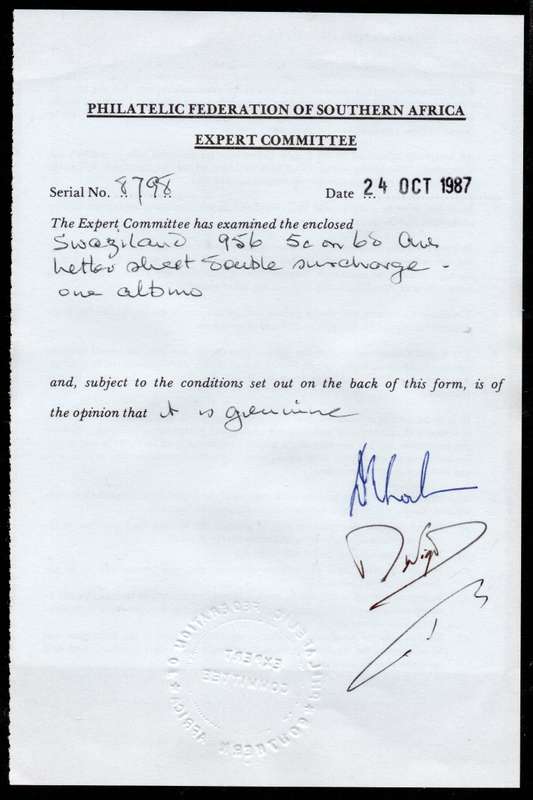 PHILATELIC FEDERATION OF SOUTHERN AFRICA
EXPERT COMMITTEE
Serial No. 8798
Date 24 OCT 1987
The Expert Committee has examined the enclosed
Swaziland 95b 5c on 6d
letter sheet Double surcharge -
one albino
and, subject to the conditions set out on the back of this form, is of
the opinion that it is genuine
PHILATELIC FEDERATION OF SOUTHERN AFRICA
EXPERT
COMMITTEE